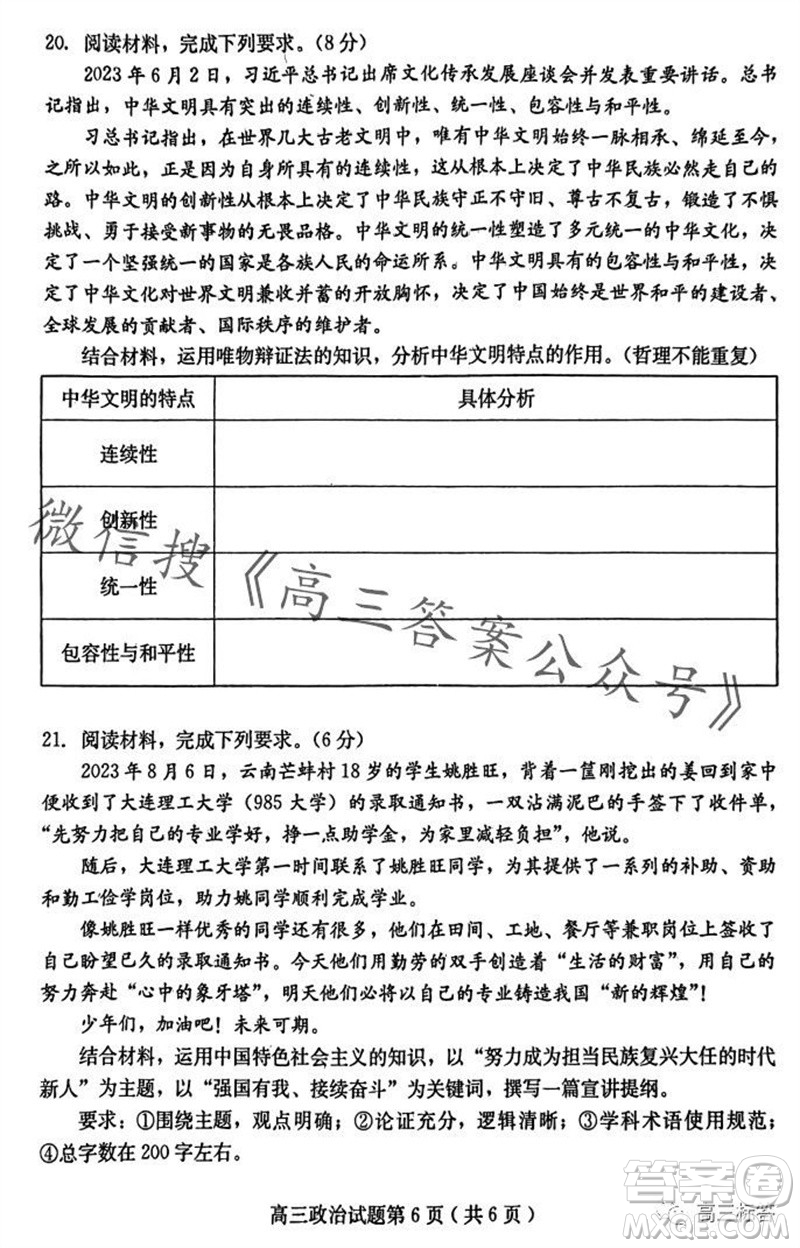 20. 阅读材料，完成下列要求。（8 分）
2023 年 6 月 2 日，习近平总书记出席文化传承发展座谈会并发表重要讲话。总书
记指出，中华文明具有突出的连续性、创新性、统一性、包容性与和平性。
习总书记指出，在世界几大古老文明中，唯有中华文明始终一脉相承、绵延至今，
之所以如此，正是因为自身所具有的连续性，这从根本上决定了中华民族必然走自己的
路。中华文明的创新性从根本上决定了中华民族守正不守旧、尊古不复古，锻造了不惧
挑战、勇于接受新事物的无畏品格。中华文明的统一性塑造了多元统一的中华文化，决
定了一个坚强统一的国家是各族人民的命运所系。中华文明具有的包容性与和平性，决
定了中华文化对世界文明兼收并蓄的开放胸怀，决定了中国始终是世界和平的建设者、
全球发展的贡献者、国际秩序的维护者。
结合材料，运用唯物辩证法的知识，分析中华文明特点的作用。（哲理不能重复）
中华文明的特点 具体分析
连续性
创新性
统一性
包容性与和平性
微信搜《高三答案公众号》
21. 阅读材料，完成下列要求。（6 分）
2023 年 8 月 6 日，云南芒蚌村 18 岁的学生姚胜旺，背着一筐刚挖出的姜回到家中
便收到了大连理工大学（985 大学）的录取通知书，一双沾满泥巴的手签下了收件单，
“先努力把自己的专业学好，挣一点助学金，为家里减轻负担”，他说。
随后，大连理工大学第一时间联系了姚胜旺同学，给予了一系列的补助、资助
和勤工俭学岗位，助力姚同学顺利完成学业。
像姚胜旺一样优秀的同学还有很多，他们在田间、工地、餐厅等兼职岗位上签收了
自己盼望已久的录取通知书。今天他们用勤劳的双手创造着“生活的财富”，用自己的
努力奔赴“心中的象牙塔”，明天他们将以自己的专业铸造我国“新的辉煌”！
少年们，加油吧！未来可期。
结合材料，运用中国特色社会主义的知识，以“努力成为担当民族复兴大任的时代
新人”为主题，以“强国有我、接续奋斗”为关键词，撰写一篇宣讲提纲。
要求：①围绕主题，观点明确；②论证充分，逻辑清晰；③学科术语使用规范；
④总字数在 200 字左右。
高三政治试题第 6 页（共 6 页）
高三标答
答案圈
MXQE.COM